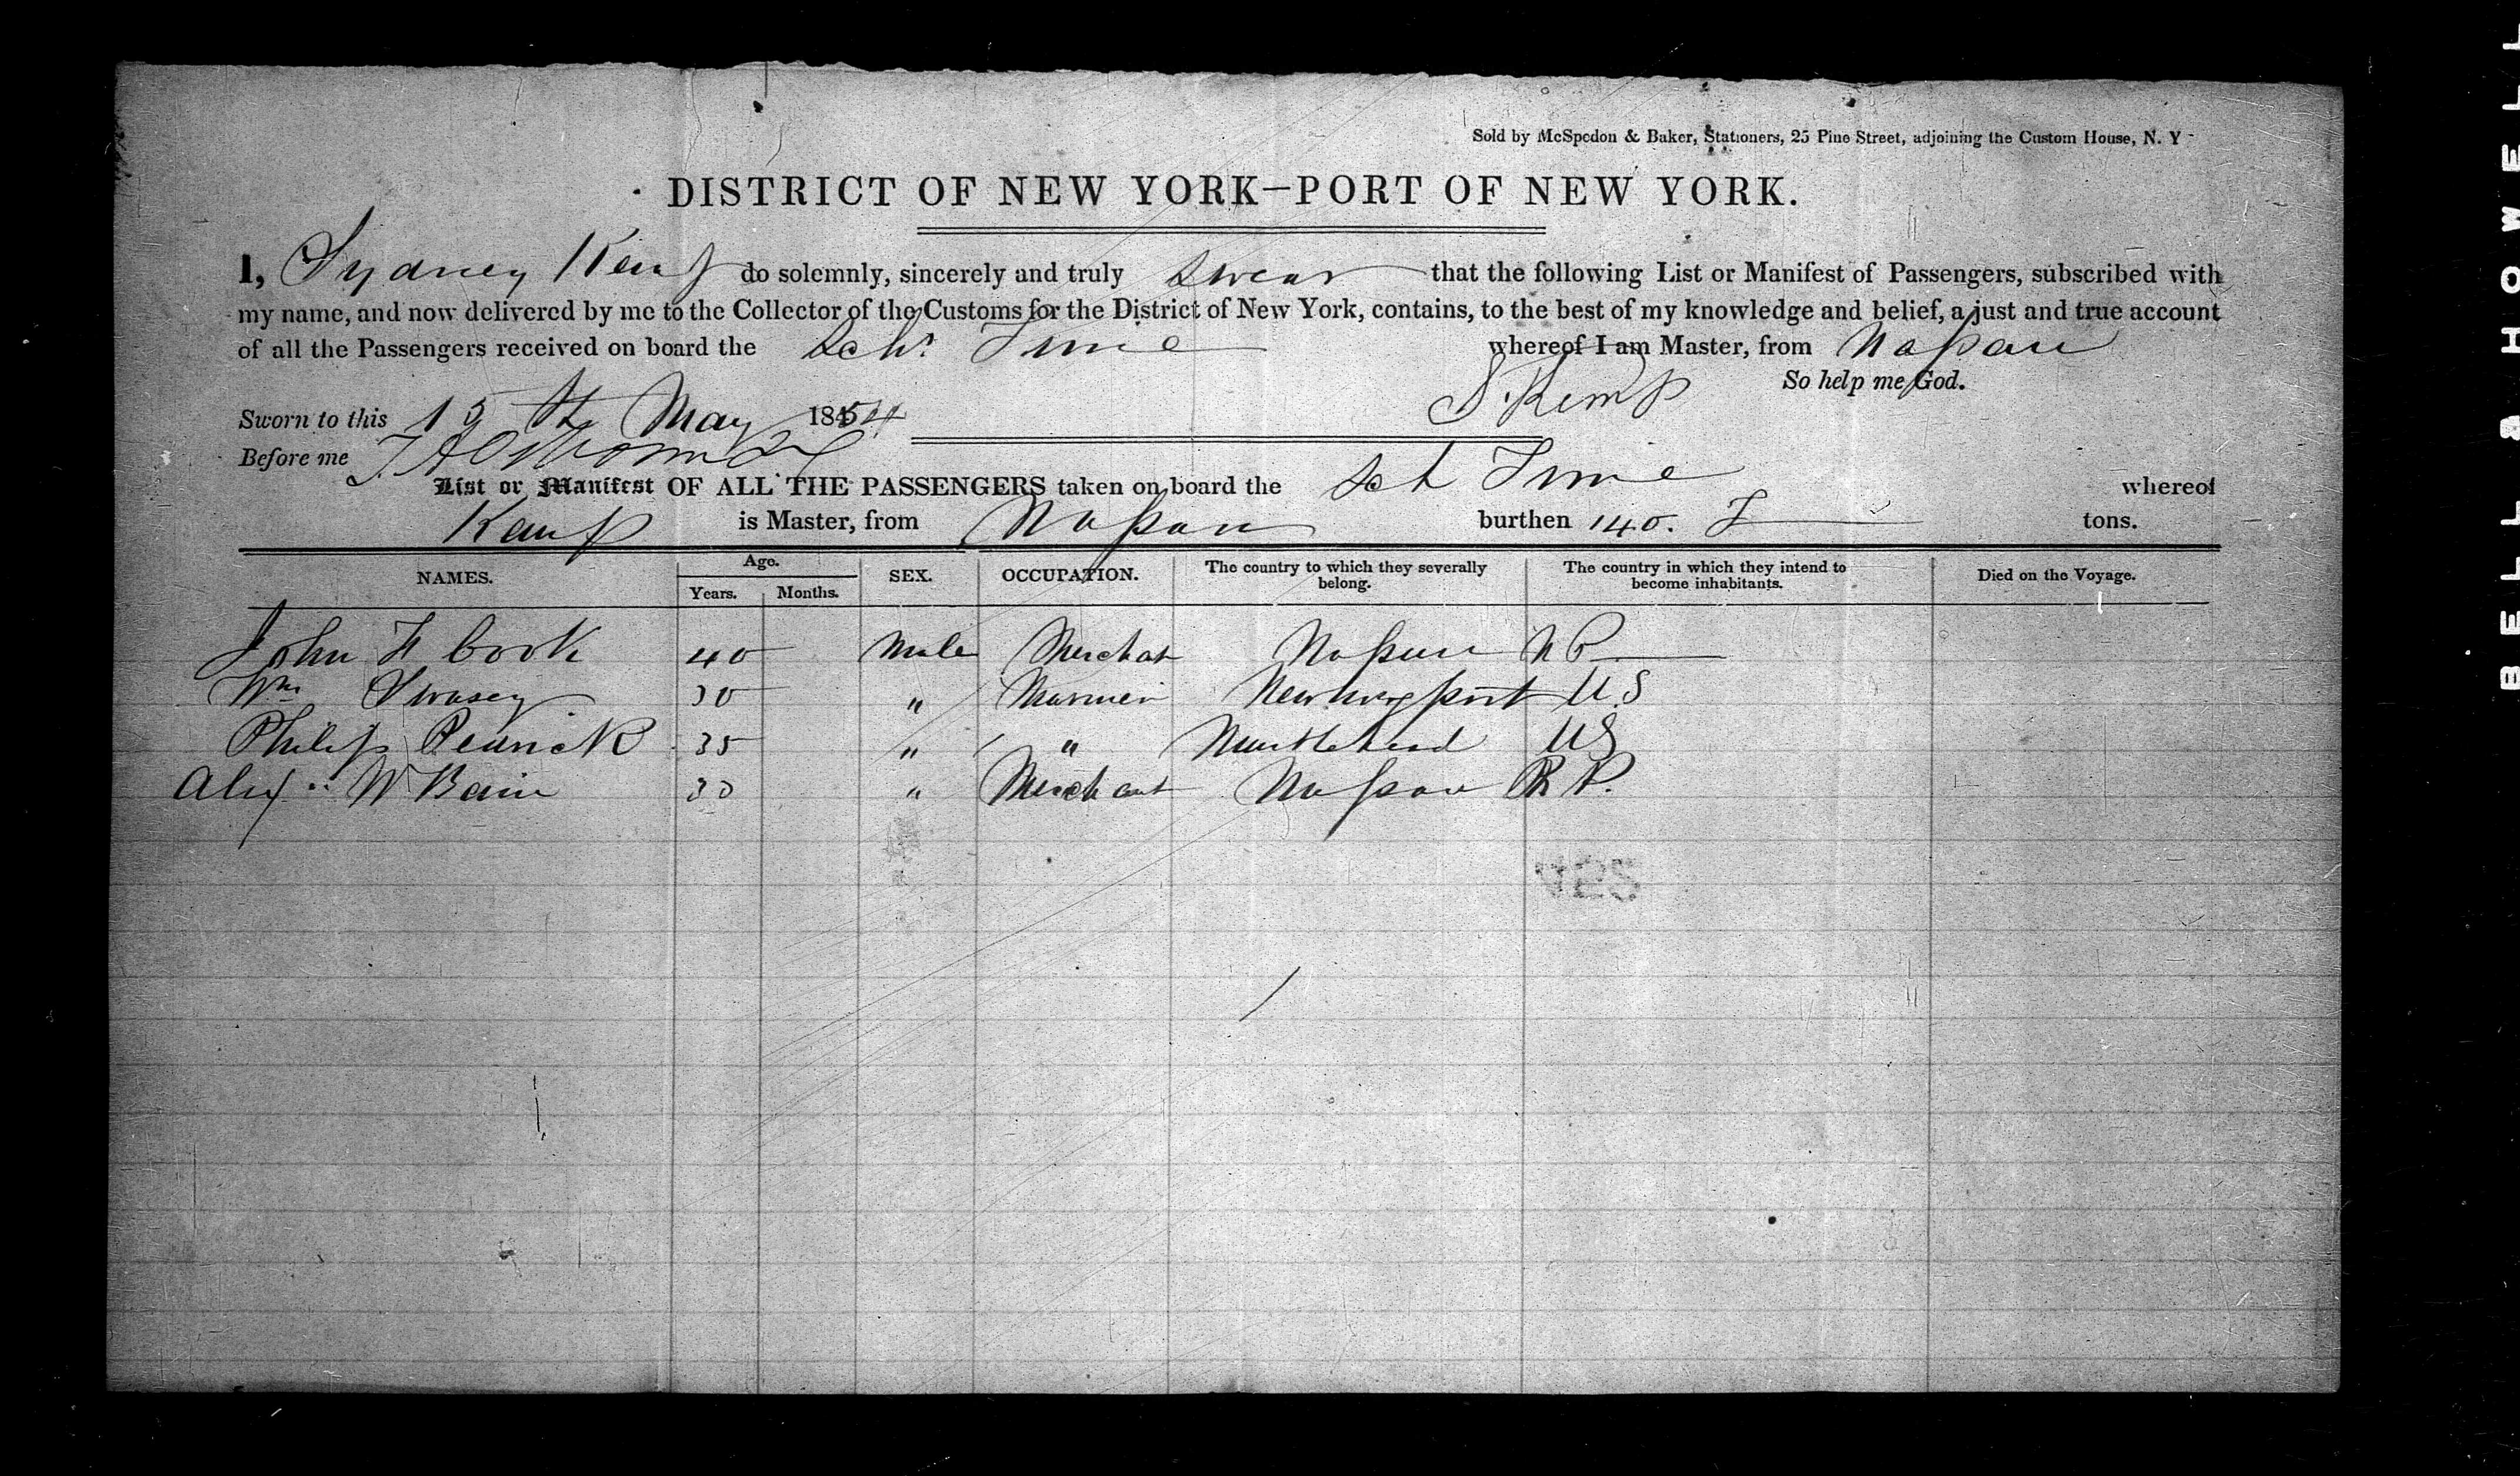 Sold by McSpedon & Baker, Stationers, 25 Pine Street, adjoining the Custom House, N. Y
DISTRICT OF NEW YORK—PORT OF NEW YORK.
I, Sydney Kemp do solemnly, sincerely and truly swear that the following List or Manifest of Passengers, subscribed with
my name, and now delivered by me to the Collector of the Customs for the District of New York, contains, to the best of my knowledge and belief, a just and true account
of all the Passengers received on board the Schr Time whereof I am Master, from Nassau
So help me God.
S. Kemp
Sworn to this 15th May 1854
Before me
List or Manifest OF ALL THE PASSENGERS taken on board the Sch Time whereof
Kemp is Master, from Nassau burthen 140. T tons.
NAMES. Age. Years. Months. SEX. OCCUPATION. The country to which they severally belong. The country in which they intend to become inhabitants. Died on the Voyage.
John H Cook 40 Male Merchat Nassau N P
Wm Swasey 30 " Mariner Newburyport U.S
Philip Pedrick 35 " " Marblehead US
Alex: W Bain 30 " Merchant Nassau N P.
BELL & HOWELL